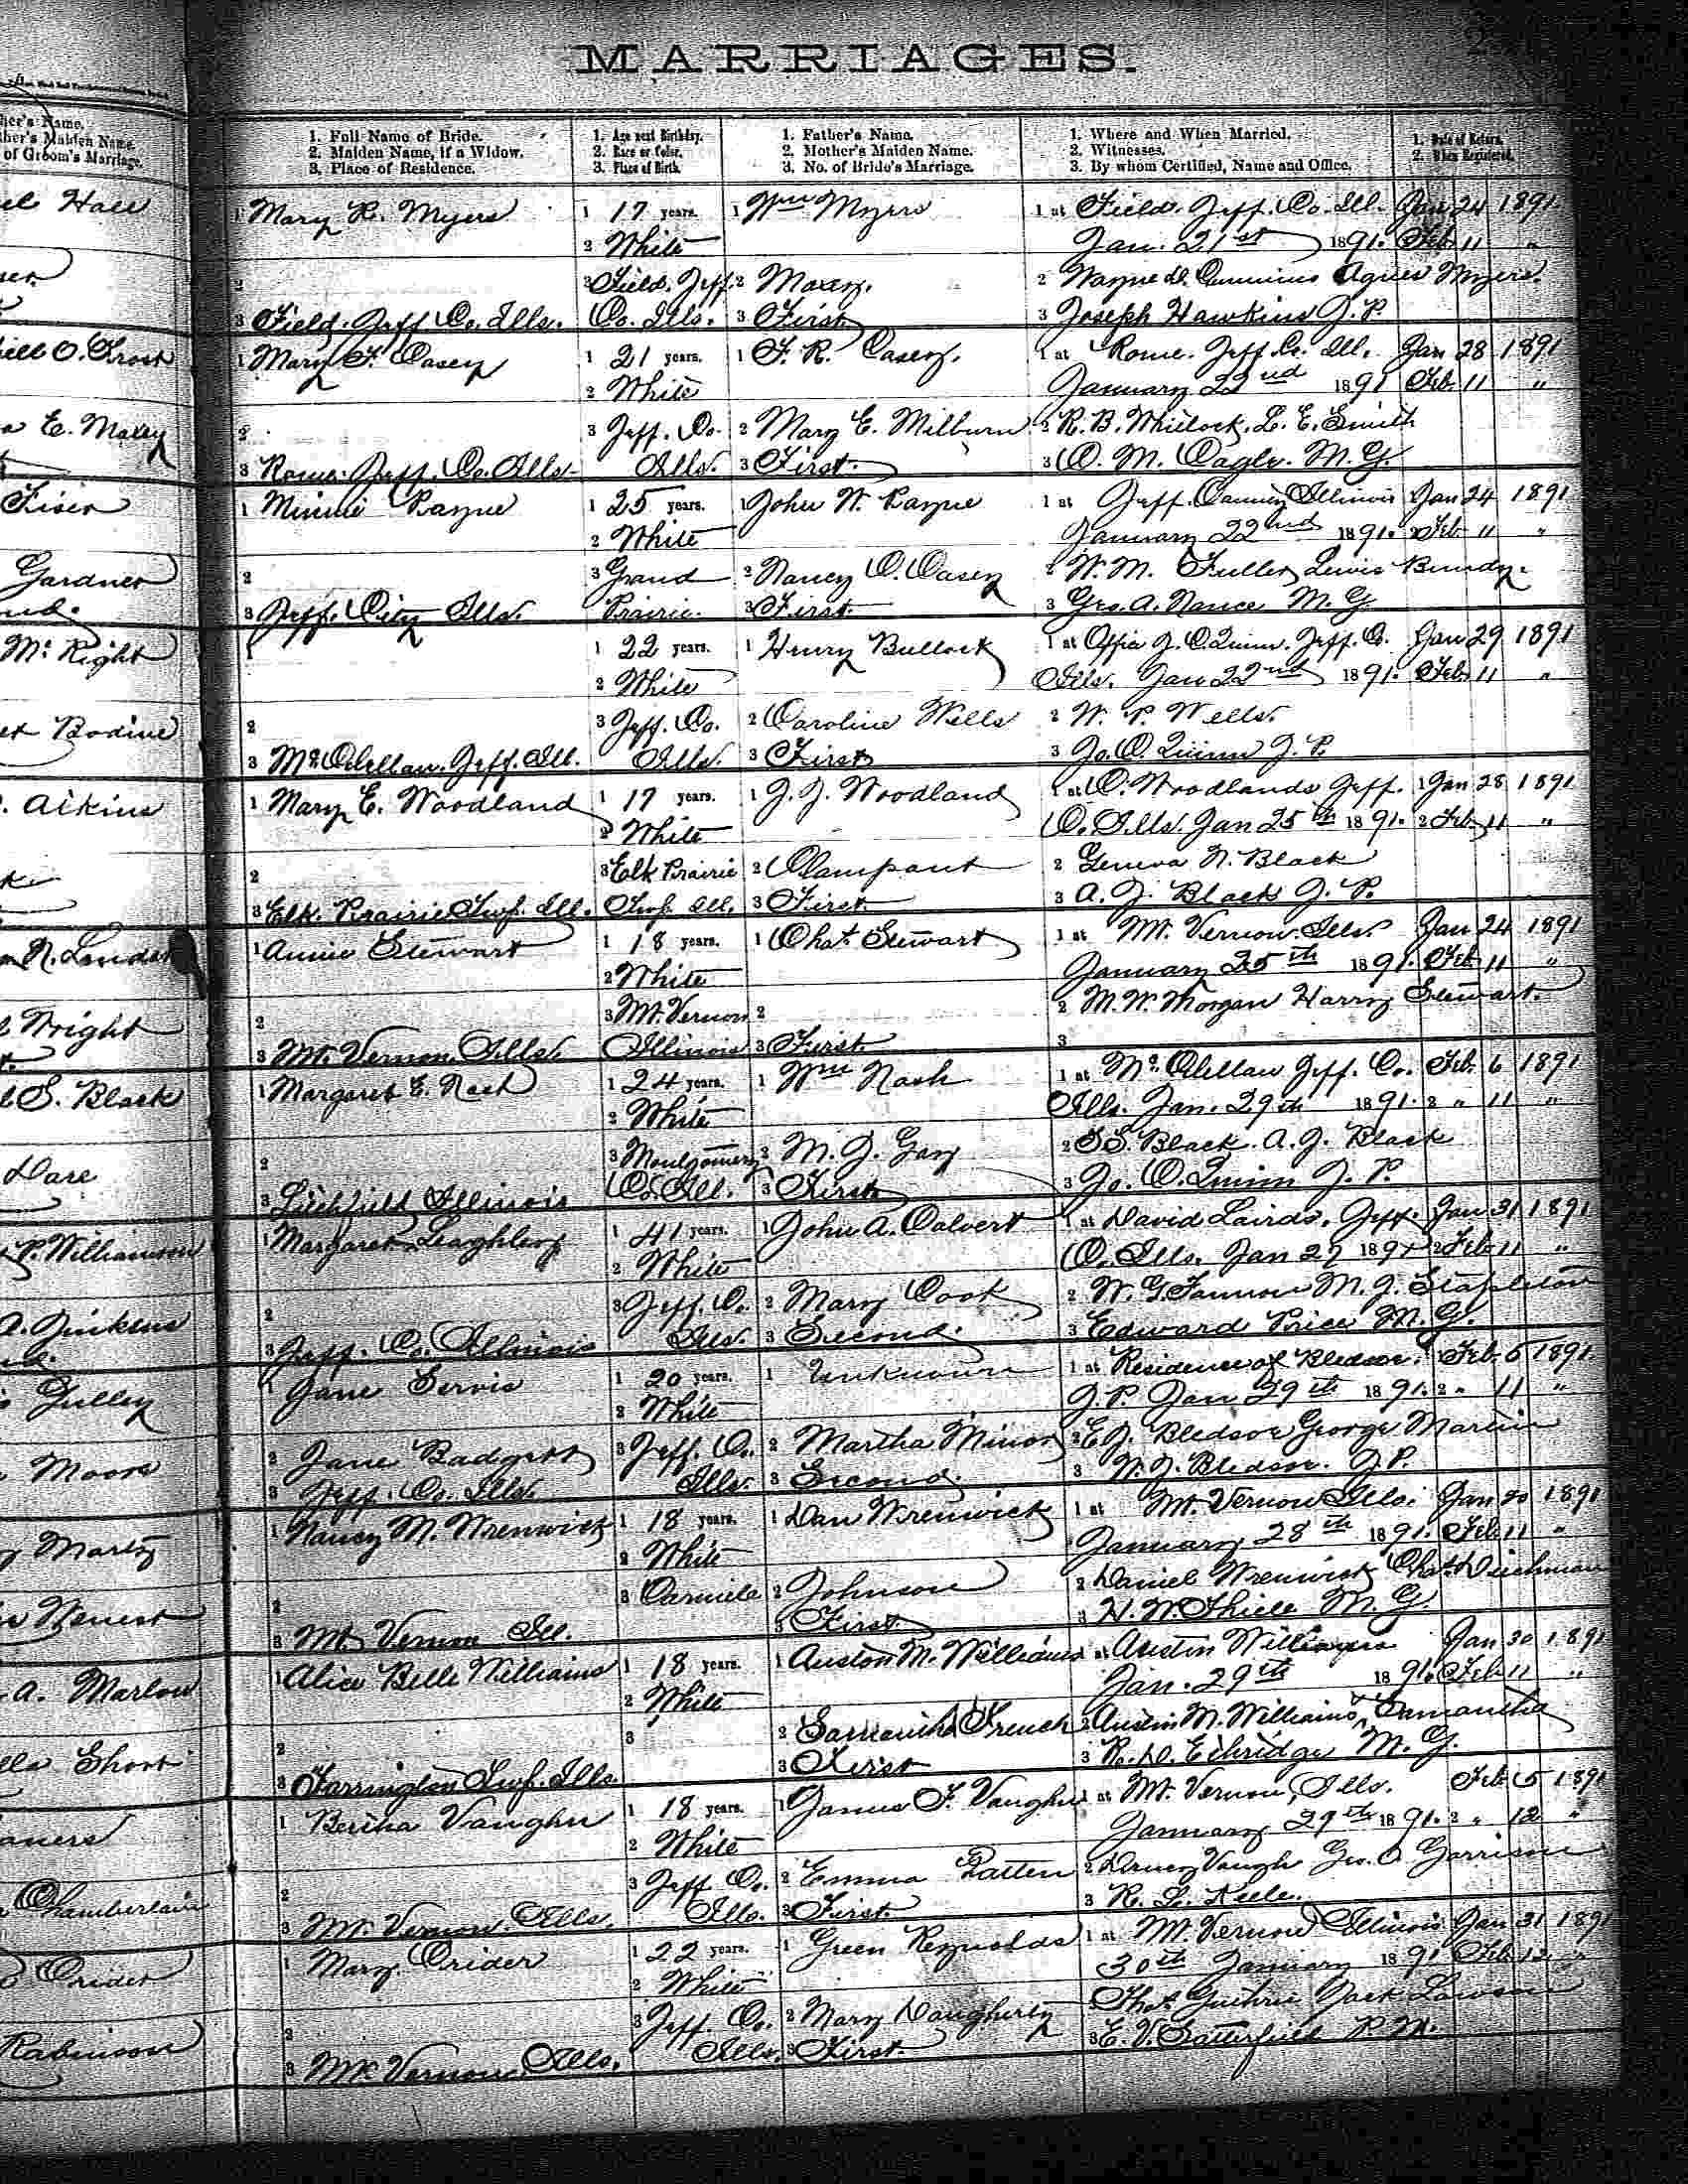 MARRIAGES.
her's Name.
her's Maiden Name.
of Groom's Marriage.
1. Full Name of Bride.
2. Maiden Name, if a Widow.
3. Place of Residence.
1. Age next Birthday.
2. Race or Color.
3. Place of Birth.
1. Father's Name.
2. Mother's Maiden Name.
3. No. of Bride's Marriage.
1. Where and When Married.
2. Witnesses.
3. By whom Certified, Name and Office.
1. Date of Return.
2. When Registered.
Hall 1 Mary R. Myers 1 17 years. 1 Wm Myers 1 at Field. Jeff. Co. Ill. Jan 24 1891
2 White Jan. 21st 1891. Feb 11 "
2 3 Field, Jeff. 2 Maxey. 2 Wayne D. Cummins Agnes Myers.
3 Field. Jeff Co. Ills. Co. Ills. 3 First 3 Joseph Hawkins J. P.
O. Frost 1 Mary F. Casey 1 21 years. 1 F. R. Casey. 1 at Rome. Jeff. Co. Ill. Jan 28 1891
2 White January 22nd 1891 Feb 11 "
E. Maley 2 3 Jeff. Co. 2 Mary E. Milburn 2 R. B. Whitlock. L. E. Smith
3 Rome. Jeff. Co. Ills. Ills. 3 First. 3 O. M. Cagle. M. G.
Fiser 1 Minnie Payne 1 25 years. 1 John W. Payne 1 at Jeff. County Illinois Jan 24 1891
2 White January 22nd 1891. 2 Feb 11 "
Gardner 2 3 Grand 2 Nancy C. Casey 2 W. M. Fuller, Lewis Bundy.
3 Jeff. City Ills. Prairie. 3 First 3 Geo. A. Nance M. G.
McRight 1 1 22 years. 1 Henry Bullock 1 at Office J. C. Quinn. Jeff. Co. Jan 29 1891
2 White Ills. Jan 22nd 1891. Feb 11 "
Bodine 2 3 Jeff. Co. 2 Caroline Wells 2 W. P. Wells.
3 McClellan. Jeff. Ill. Ills. 3 First 3 Jo. C. Quinn J. P.
Aikins 1 Mary E. Woodland 1 17 years. 1 J. J. Woodland 1 at C. Woodlands Jeff. 1 Jan 28 1891
2 White Co. Ills. Jan 25th 1891. 2 Feb 11 "
2 3 Elk Prairie 2 Clampant 2 Geneva N. Black
3 Elk. Prairie Twp. Ill. Twp. Ill. 3 First 3 A. J. Black J. P.
1 Annie Stewart 1 18 years. 1 Chas. Stewart 1 at Mt. Vernon. Ills. Jan 24 1891
2 White January 25th 1891. Feb 11 "
Wright 2 3 Mt. Vernon 2 2 M. W. Morgan Harry Stewart.
3 Mt. Vernon. Ills. Illinois 3 First 3
S. Black 1 Margaret E. Nash 1 24 years. 1 Wm Nash 1 at McClellan Jeff. Co. Feb. 6 1891
2 White Ills. Jan. 29th 1891. 2 " 11 "
Dare 2 3 Montgomery 2 M. J. Gay 2 S. S. Black. A. J. Black
3 Litchfield Illinois Co. Ill. 3 First 3 Jo. C. Quinn J. P.
P. Williamson 1 Margaret 1 41 years. 1 John A. Calvert 1 at David Lairds. Jeff. Jan 31 1891
2 White Co. Ills. Jan 27 1891 2 Feb 11 "
A. Jinkens 2 3 Jeff. Co. 2 Mary Cook 2 W. G. M. J. Stapleton
3 Jeff. Co. Illinois Ills. 3 Second. 3 Edward Price M. G.
Gulley 1 Jane Servis 1 20 years. 1 Unknown 1 at Residence of Bledsoe. Feb. 5 1891
2 White J. P. Jan 29th 1891. 2 " 11 "
Moore 2 Jane Badgett 3 Jeff. Co. 2 Martha Minor 2 E. J. Bledsoe George Martin
3 Jeff. Co. Ills. Ills. 3 Second. 3 W. J. Bledsoe. J. P.
1 Nancy M. Wrenwick 1 18 years. 1 Dan Wrenwick 1 at Mt. Vernon Ills. Jan 30 1891
Marty 2 White January 28th 1891. Feb 11 "
2 3 Carmiele 2 Johnson 2 Daniel Wrenwick Chas. Deichman
3 Mt Vernon Ill. 3 First. 3 H. W. Thiele M. G.
A. Marlow 1 Alice Belle Williams 1 18 years. 1 Auston M. Williams at Austin Williams Jan 30 1891
2 White Jan. 29th 1891. Feb 11 "
Short 2 3 2 Samantha French 2 Austin M. Williams, Samantha
3 Farrington Twp. Ills. 3 First 3 R. D. Ethridge M. G.
1 Bertha Vaughn 1 18 years. 1 James F. Vaughn 1 at Mt. Vernon, Ills. Feb 5 1891
2 White January 29th 1891. 2 " 12 "
Chamberlain 2 3 Jeff Co. 2 Emma Patten 2 Vaughn Geo. C. Garrison
3 Mt. Vernon. Ills. Ills. 3 First 3 R. L. Keele.
Crider 1 Mary Crider 1 22 years. 1 Green Reynolds 1 at Mt. Vernon Illinois Jan 31 1891
2 White 30th January 1891 Feb 12 "
Robinson 2 3 Jeff. Co. 2 Mary Daugherty Thos. Guthrie Jack Lawson
3 Mt. Vernon, Ills. Ills. 3 First. 3 E. V. Satterfield P. M.